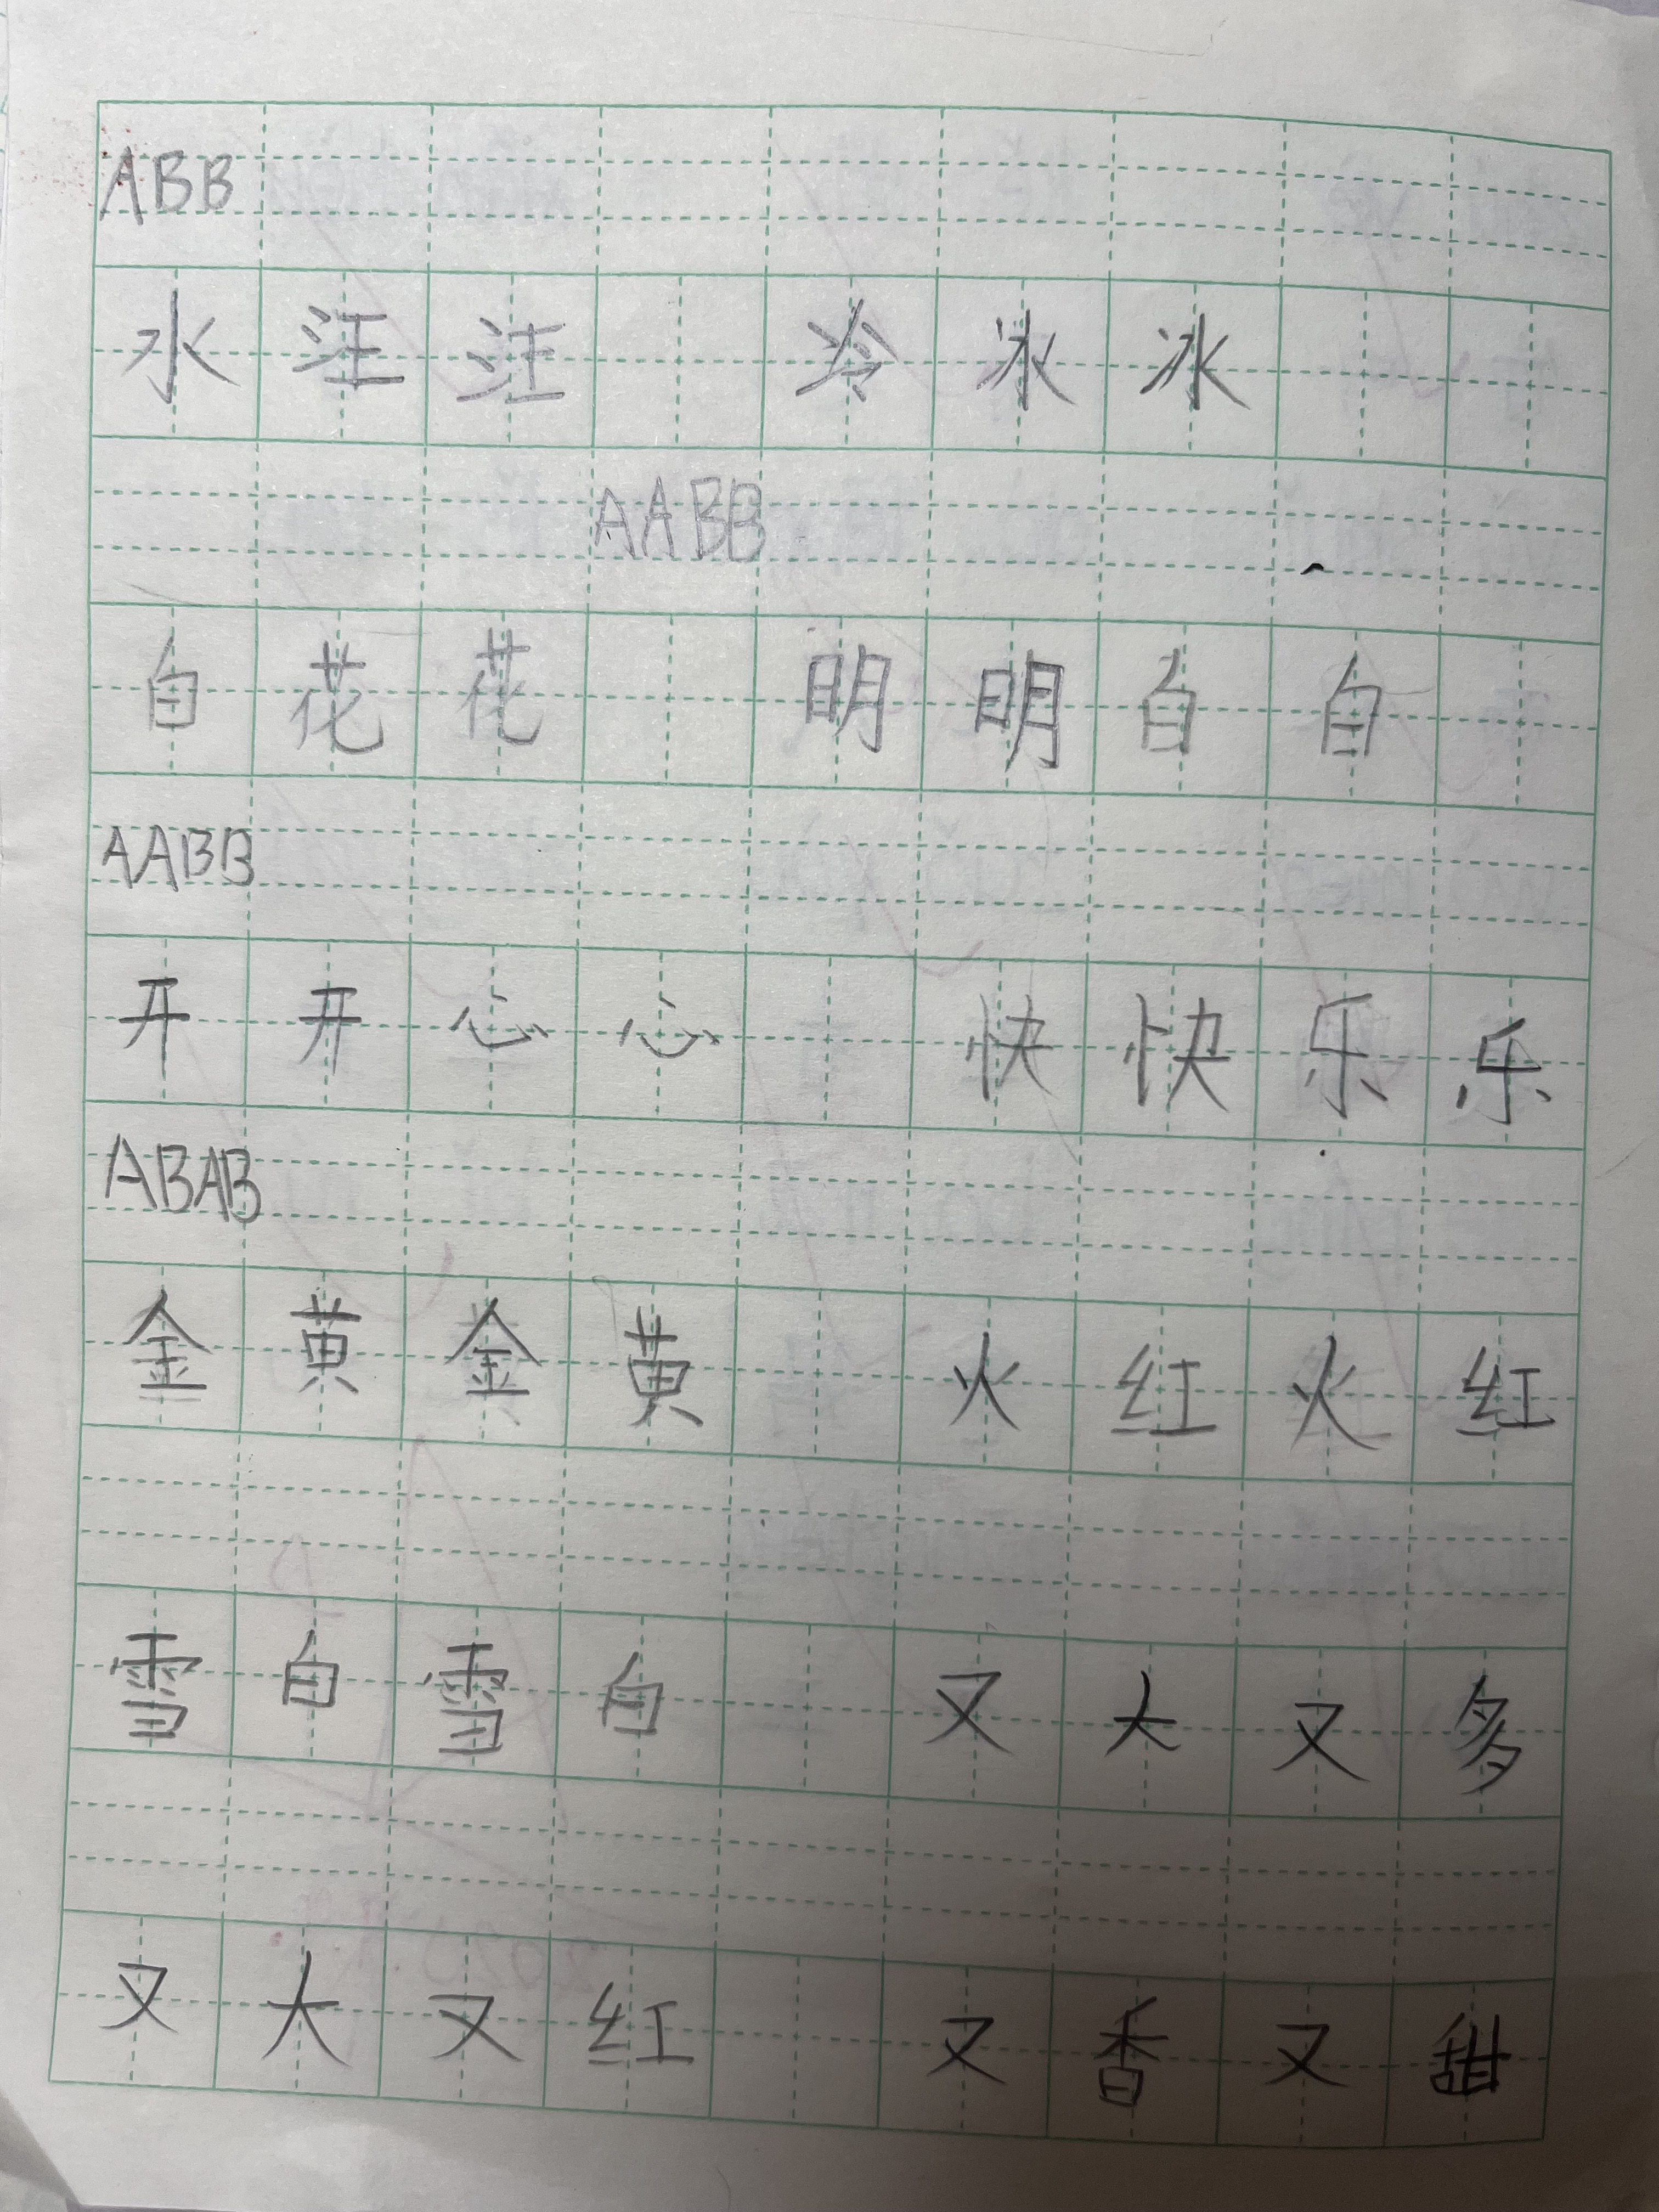 ABB
水汪汪 冷冰冰
AABB
白花花 明明白白
AABB
开开心心 快快乐乐
ABAB
金黄金黄 火红火红
雪白雪白 又大又多
又大又红 又香又甜